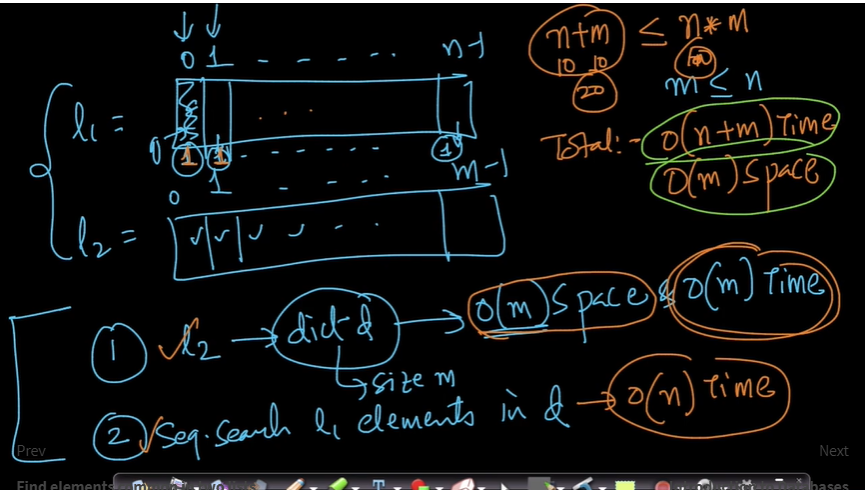 0 1 - - - - - . . n-1
l1 =
. . .
0 1 1 - - - - - 1
0 1 - - - - m-1
l2 =
n+m ≤ n*m
10 10 100
20 m ≤ n
Total:- O(n+m) Time
O(m) Space
1 l2 → dict d → O(m) Space & O(m) Time
size m
2 Seq. Search l1 elements in d → O(n) Time
Prev
Next
Find elements
bases